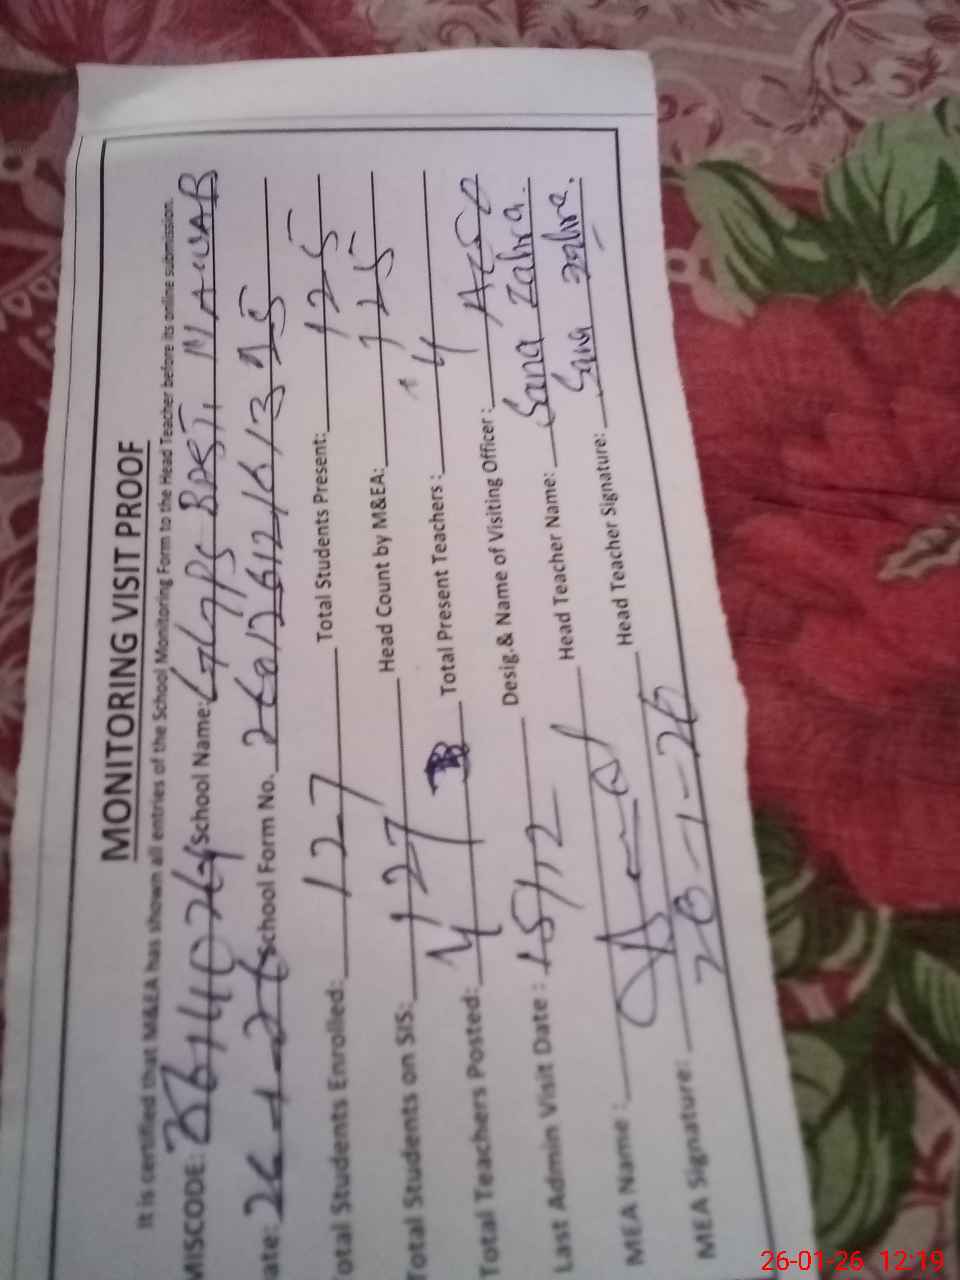 MONITORING VISIT PROOF
It is certified that M&EA has shown all entries of the School Monitoring Form to the Head Teacher before its online submission.
MISCODE: School Name: GGPS BASTI
ate: 26-1-26 School Form No.
otal Students Enrolled: 127 Total Students Present: 125
Total Students on SIS: 127 Head Count by M&EA: 125
Total Teachers Posted: 4 Total Present Teachers : 4
Last Admin Visit Date : 15/12 Desig.& Name of Visiting Officer :
MEA Name : Head Teacher Name: Sana Zahra.
MEA Signature: Head Teacher Signature: Sana zahra.
26-01-26 12:19